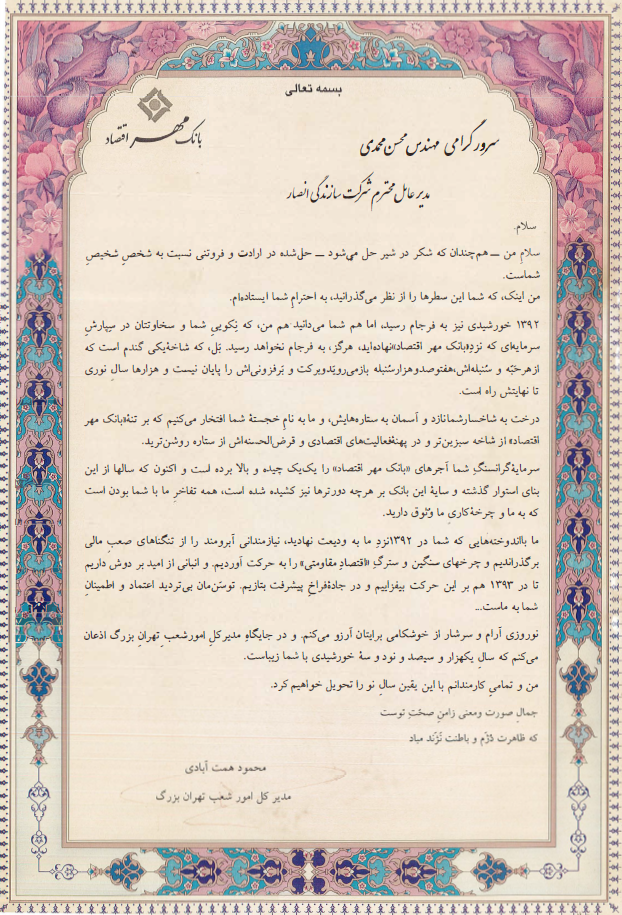 بسمه تعالی
بانک مهر اقتصاد
سرور گرامی مهندس محسن محمدی
مدیر عامل محترم شرکت سازندگی انصار
سلام.
سلام من ــ هم‌چندان که شکر در شیر حل می‌شود ــ حل‌شده در ارادت و فروتنی نسبت به شخصِ شخیصِ
شماست.
من اینک، که شما این سطرها را از نظر می‌گذرانید، به احترامِ شما ایستاده‌ام.
۱۳۹۲ خورشیدی نیز به فرجام رسید، اما هم شما می‌دانید هم من، که نِکوییِ شما و سخاوتتان در سپارشِ
سرمایه‌ای که نزدِ«بانک مهر اقتصاد»نهاده‌اید، هرگز، به فرجام نخواهد رسید. بَل، که شاخهٔ‌یکی گندم است که
ازهرحبّه و سُنبله‌اش،هفتصدوهزارسُنبله بازمی‌رویَدوبرکت و بَرفزونی‌اش را پایان نیست و هزارها سالِ نوری
تا نهایتش راه است.
درخت به شاخسارشمانازد و آسمان به ستاره‌هایش، و ما به نامِ خجستهٔ شما افتخار می‌کنیم که بر تنهٔ«بانک مهر
اقتصاد» از شاخه سبزین‌تر و در پهنهٔ‌فعالیت‌های اقتصادی و قرض‌الحسنه‌اش از ستاره روشن‌ترید.
سرمایهٔ‌گرانسنگِ شما آجرهای «بانک مهر اقتصاد» را یک‌یک چیده و بالا برده است و اکنون که سالها از این
بنای استوار گذشته و سایهٔ این بانک بر هرچه دورترها نیز کشیده شده است، همه تفاخرِ ما با شما بودن است
که به ما و چرخهٔ‌کاریِ ما وثوق دارید.
ما بااندوخته‌هایی که شما در ۱۳۹۲نزدِ ما به ودیعت نهادید، نیازمندانی آبرومند را از تنگناهای صعبِ مالی
برگذراندیم و چرخهای سنگین و سترگِ «اقتصادِ مقاومتی» را به حرکت آوردیم. و انبانی از امید بر دوش داریم
تا در ۱۳۹۳ هم بر این حرکت بیفزاییم و در جادهٔ‌فراخِ پیشرفت بتازیم. توسَن‌مان بی‌تردید اعتماد و اطمینانِ
شما به ماست...
نوروزی آرام و سرشار از خوشکامی برایتان آرزو می‌کنم. و در جایگاهِ مدیرکلِ امورشعبِ تهرانِ بزرگ اذعان
می‌کنم که سالِ یکهزار و سیصد و نود و سهٔ خورشیدی با شما زیباست.
من و تمامیِ کارمندانم با این یقین سالِ نو را تحویل خواهیم کرد.
جمالِ صورت ومعنی زامنِ صحّتِ توست
که ظاهرت دُژَم و باطنت نَژَند مباد
محمود همت آبادی
مدیر کل امور شعب تهران بزرگ